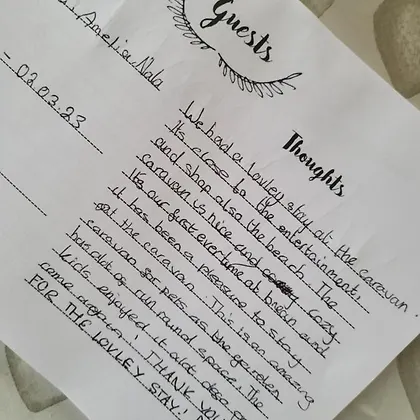 Guests
Amelia, Nala
- 02.03.23
Thoughts
We had a lovley stay at the caravan.
Its close to the entertainment,
and shop also the beach. The
caravan is nice and cozy
Its our first ever time at brean and
it has been a pleasure to stay
at the caravan. This is an amazing
caravan for pets as the garden
has alot of run round space. The
kids enjoyed it alot does
come again! THANK YOU
FOR THE LOVLEY STAY!